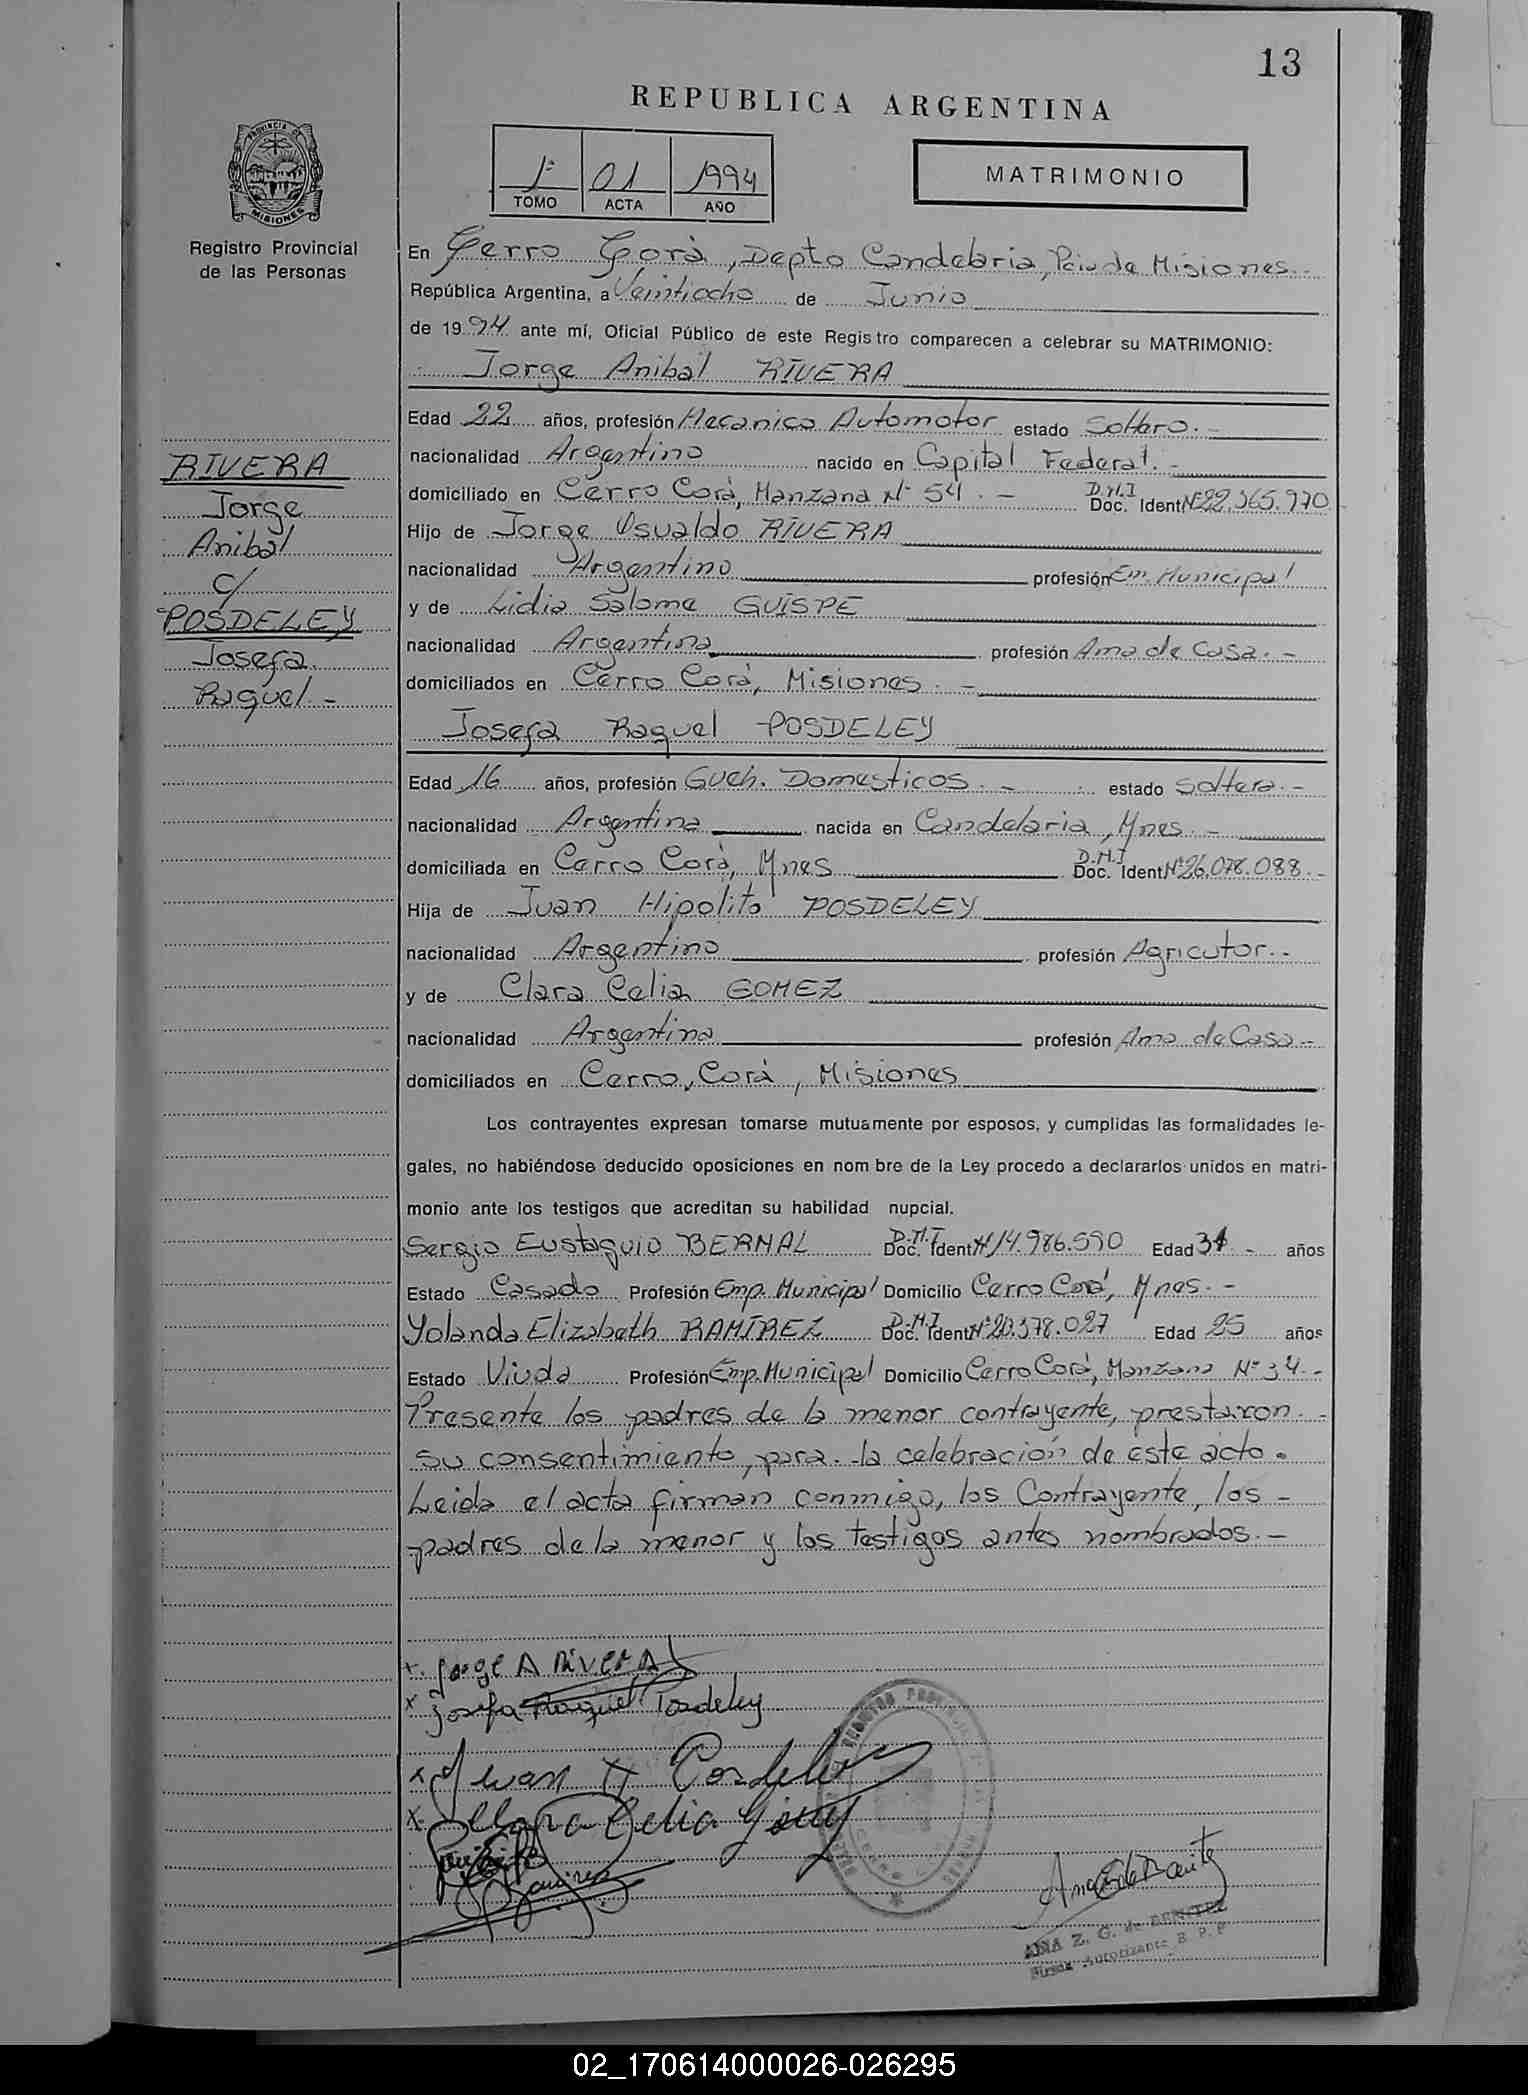 13
REPUBLICA ARGENTINA
1º 01 1994
TOMO ACTA AÑO
MATRIMONIO
PROVINCIA DE
MISIONES
Registro Provincial
de las Personas
En Cerro Corá, Depto Candelaria, Pcia de Misiones.
República Argentina, a Veintiocho de Junio
de 1994 ante mí, Oficial Público de este Registro comparecen a celebrar su MATRIMONIO:
Jorge Anibal RIVERA
Edad 22 años, profesión Mecanico Automotor estado Soltero. -
nacionalidad Argentino nacido en Capital Federal. -
domiciliado en Cerro Corá, Manzana Nº 54. - D.N.I Doc. Ident Nº 22.365.970
Hijo de Jorge Osualdo RIVERA
nacionalidad Argentino profesión Em. Municipal
y de Lidia Salome GUISPE
nacionalidad Argentina profesión Ama de Casa. -
domiciliados en Cerro Corá, Misiones. -
RIVERA
Jorge
Anibal
c/
POSDELEY
Josefa
Raquel. -
Josefa Raquel POSDELEY
Edad 16 años, profesión Queh. Domesticos. - estado soltera. -
nacionalidad Argentina nacida en Candelaria, Mnes. -
domiciliada en Cerro Corá, Mnes D.N.I Doc. Ident Nº 26.078.088. -
Hija de Juan Hipolito POSDELEY
nacionalidad Argentino profesión Agricutor. -
y de Clara Celia GOMEZ
nacionalidad Argentina profesión Ama de Casa -
domiciliados en Cerro, Corá, Misiones
Los contrayentes expresan tomarse mutuamente por esposos, y cumplidas las formalidades le-
gales, no habiéndose deducido oposiciones en nombre de la Ley procedo a declararlos unidos en matri-
monio ante los testigos que acreditan su habilidad nupcial.
Sergio Eustaquio BERNAL D.N.I Doc. Ident Nº 14.986.590 Edad 31 - años
Estado Casado Profesión Emp. Municipal Domicilio Cerro Corá, Mnes. -
Yolanda Elizabeth RAMÍREZ D.N.I Doc. Ident Nº 20.378.027 Edad 25 años
Estado Viuda Profesión Emp. Municipal Domicilio Cerro Corá, Manzana Nº 34. -
Presente los padres de la menor contrayente, prestaron. -
su consentimiento, para la celebración de este acto.
Leida el acta firman conmigo, los Contrayente, los -
padres de la menor y los testigos antes nombrados. -
x. Jorge A RIVERA
x Josefa Raquel Posdeley
x Juan H Posdeley
x. Clara Celia Gomez
Ramirez
ANA Z. G. de BENITEZ
Autorizante R. P. P
02_170614000026-026295